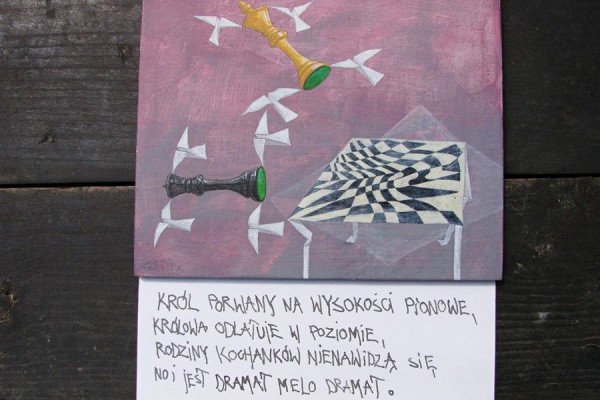 KRÓL PORWANY NA WYSOKOŚCI PIONOWE,
KRÓLOWA ODLATUJE W POZIOMIE,
RODZINY KOCHANKÓW NIENAWIDZĄ SIĘ
NO I JEST DRAMAT MELO DRAMAT.